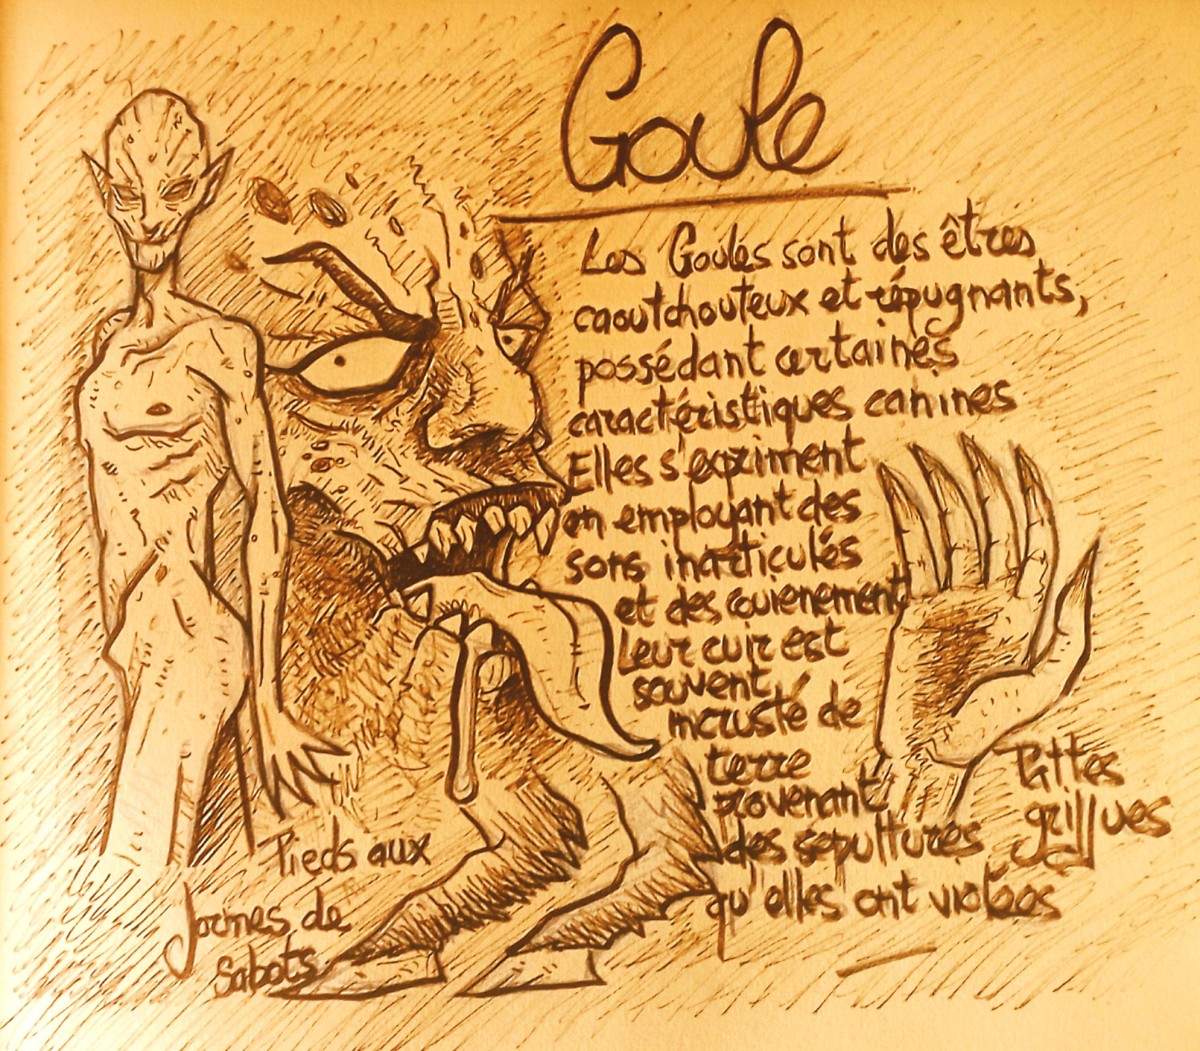 Goule
Les Goules sont des êtres
caoutchouteux et répugnants,
possédant certaines
caractéristiques canines
Elles s'expriment
en employant des
sons inarticulés
et des couienement
Leur cuir est
souvent
incrusté de
terre
provenant
des sépultures
qu'elles ont violées
Pattes
griffues
Pieds aux
formes de
Sabots